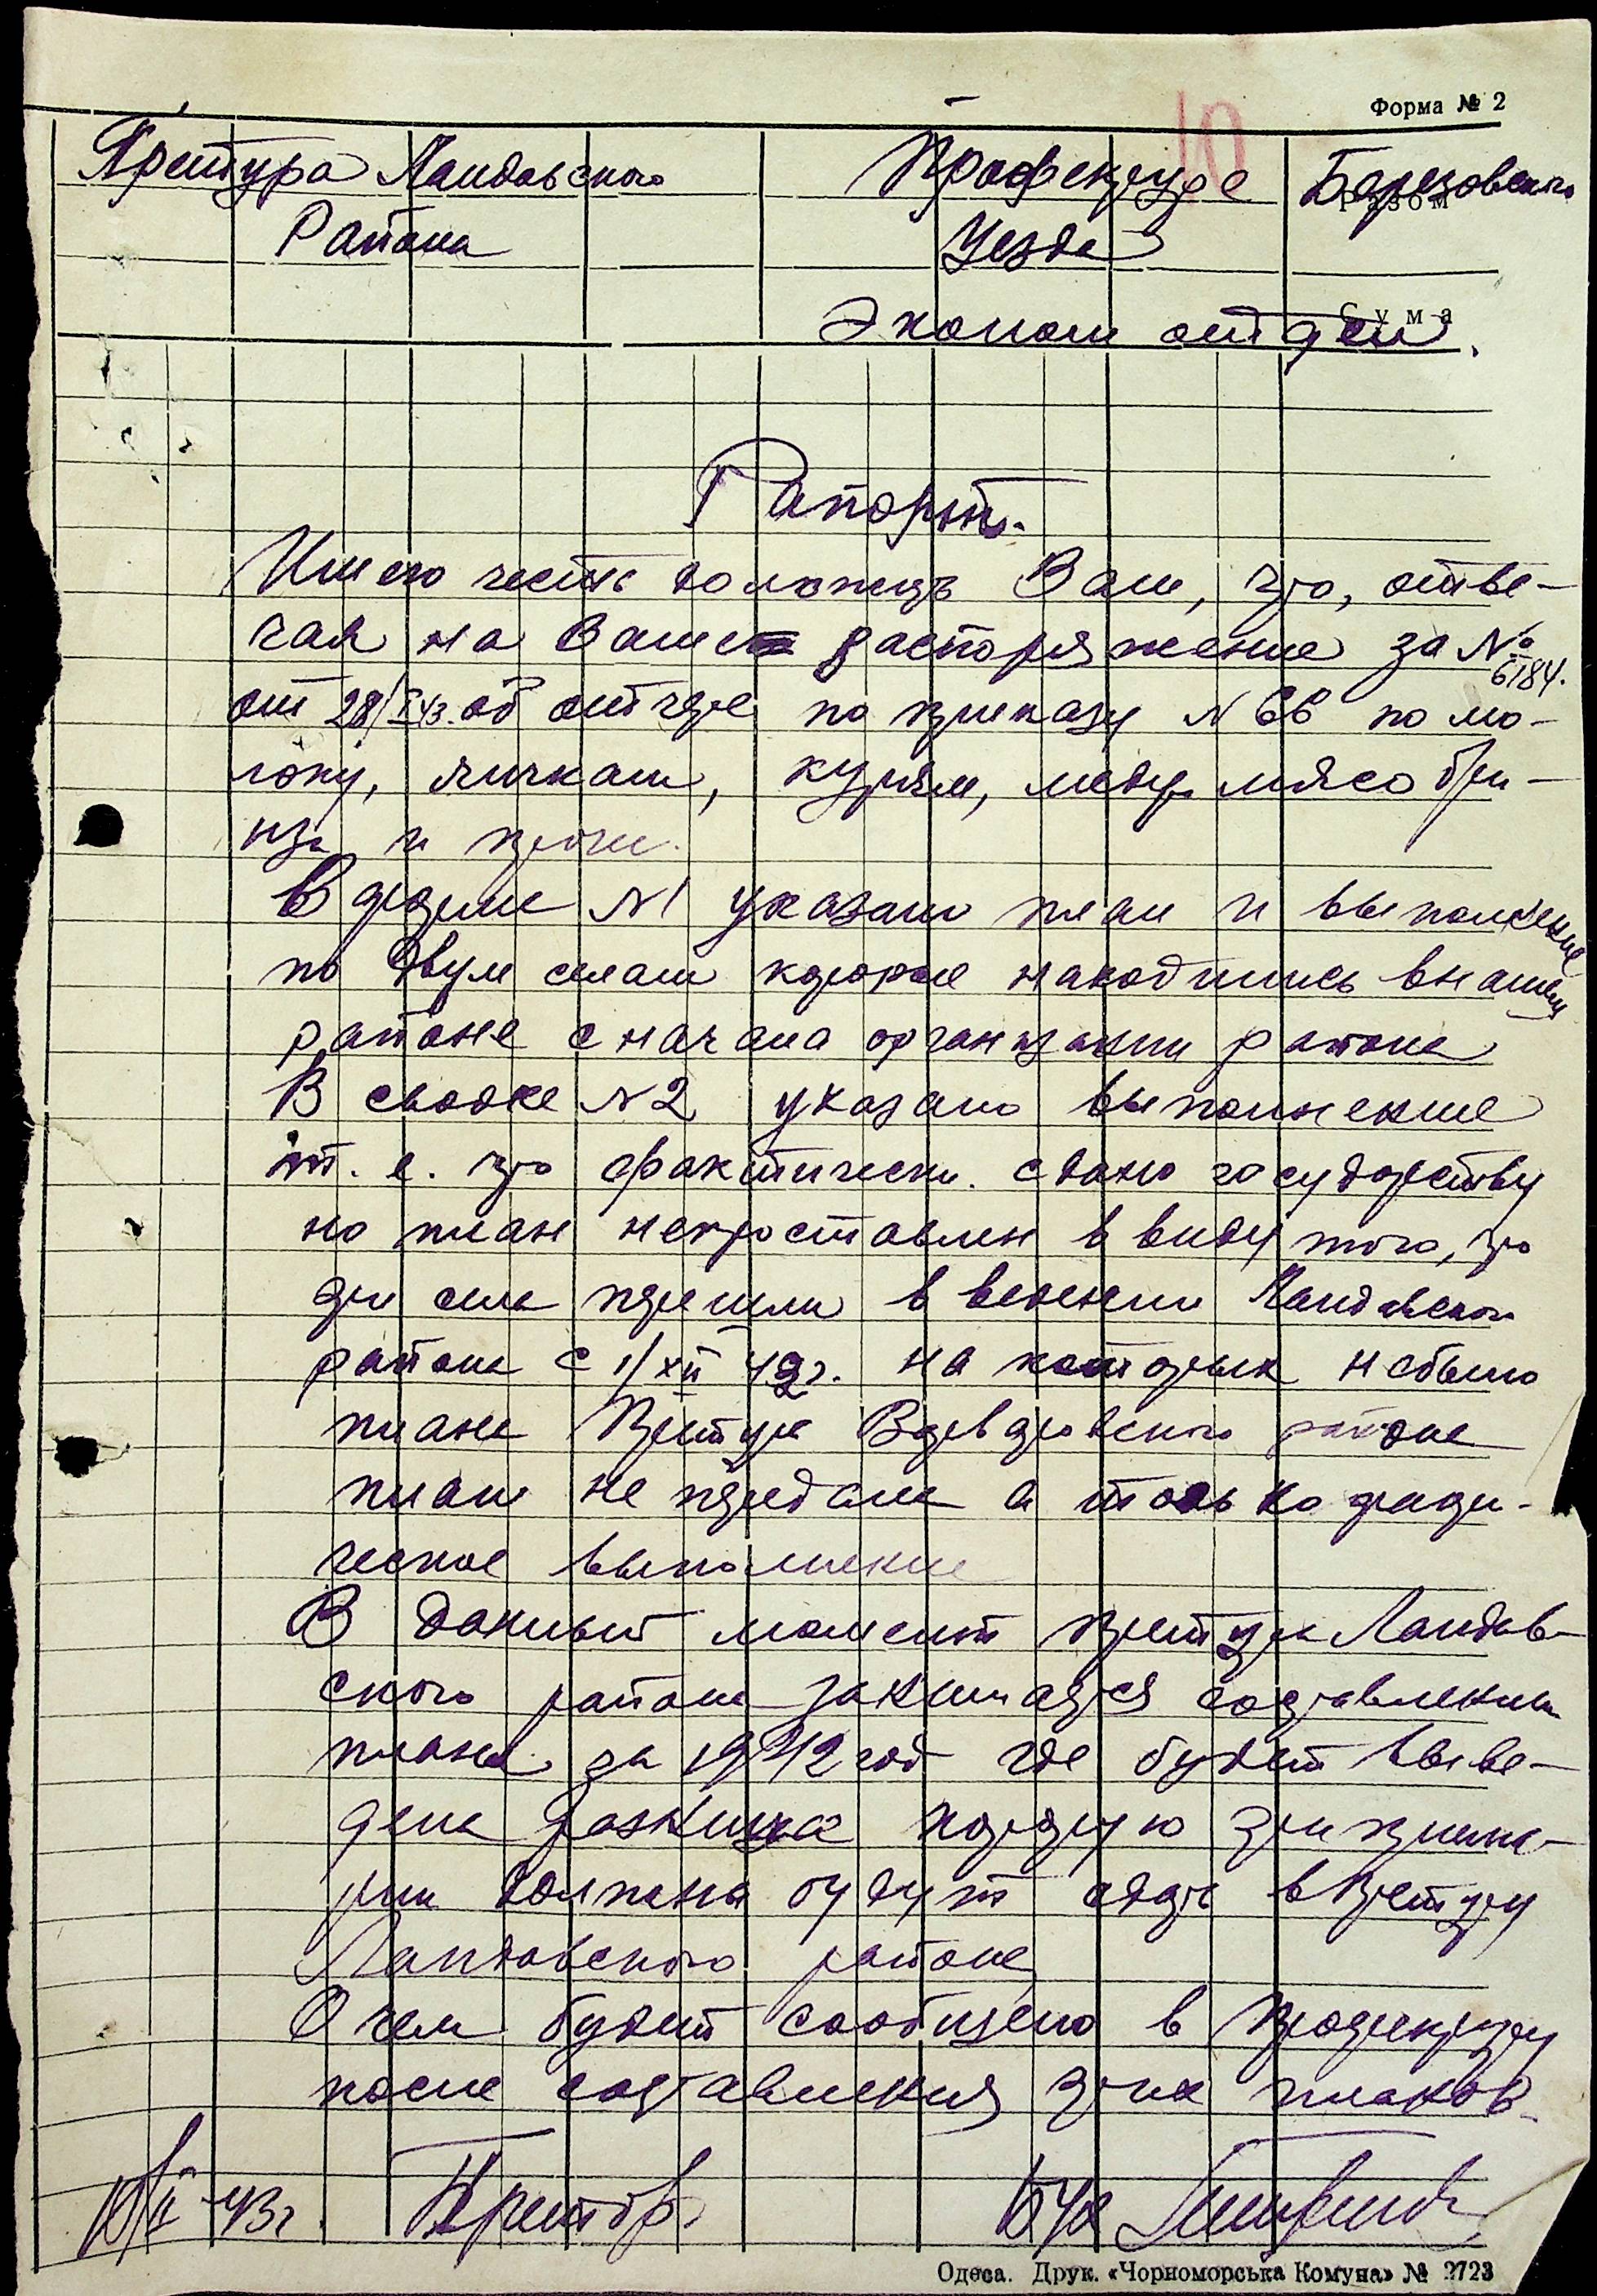 Форма № 2
10
Претура Ландавского Префектуре Березовского
Разом
Района Уезда
Сума
Эконом отдел.
Рапорт.
Имею честь доложить Вам, что, отве-
чая на Ваше распоряжение за №
6184.
от 28/I 43. об отчете по приказу № 66 по мо-
локу, яичкам, курям, меду мясо бры-
нза и проч.
В форме №1 указано план и выполнение
по двум селам которые находились в нашем
районе с начала организации района
В сводке №2 указано выполнение
т. е. что фактически. сдано государству
но план непроставлен в виду того, что
эти села перешли в ведении Ландавского
района с 1/XII 42г. на которых небыло
плана Претура района
план не передала а только факти-
ческое выполнение
В данный момент претура Ландав-
ского района занимается составлением
плана за 1942 год где будет выве-
дена разница которую эти прима-
рии должны будут сдать в Претуру
Ландавского района
О чем будет сообщено в Префектуру
после составления этих планов.
10/II 43г. Претор. Бух
Одеса. Друк. «Чорноморська Комуна» № 2723